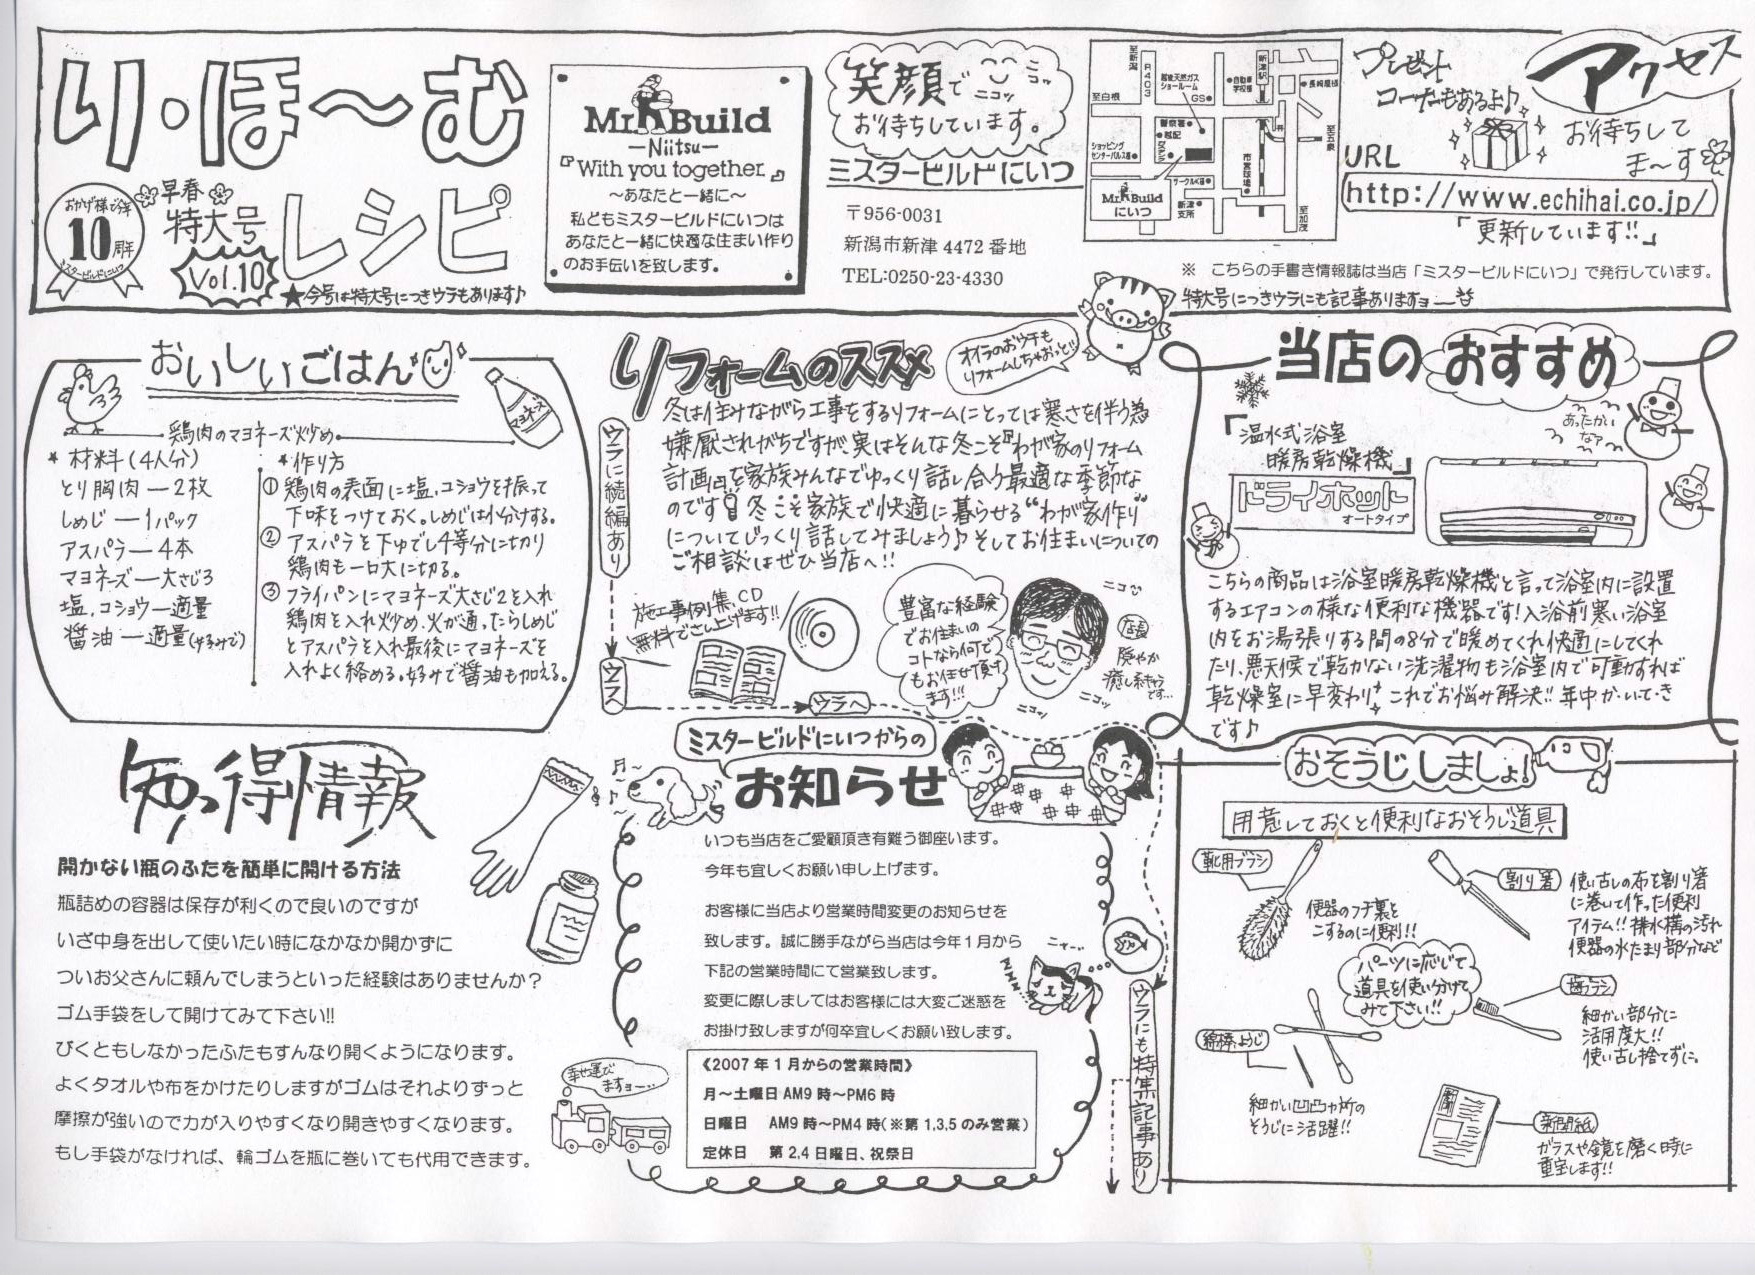 り・ほ〜む
レシピ
おかげ様で今年
10周年
ミスタービルドにいつ
早春
特大号
Vol.10
★今号は特大号につきウラもあります♪
Mr. Build
—Niitsu—
『With you together.』
〜あなたと一緒に〜
私どもミスタービルドにいつは
あなたと一緒に快適な住まい作り
のお手伝いを致します。
笑顔で
ニコッ
ニコッ
お待ちしています。
ミスタービルドにいつ
〒956-0031
新潟市新津 4472 番地
TEL:0250-23-4330
至新潟
R403
越後天然ガス
ショールーム
GS
自動車
学校様
新津駅
長崎屋様
至白根
警察署
越配
ショッピング
センターパルス様
サークルK様
市営球場
至五泉
Mr. Build
にいつ
新津
支所
至加茂
プレゼント
コーナーもあるよ♪
アクセス
お待ちして
ま〜す
URL
http://www.echihai.co.jp/
「更新しています!!」
※ こちらの手書き情報誌は当店「ミスタービルドにいつ」で発行しています。
特大号につきウラにも記事ありますョ
おいしいごはん
マヨネーズ
鶏肉のマヨネーズ炒め
* 材料(4人分)
とり胸肉 — 2枚
しめじ — 1パック
アスパラ — 4本
マヨネーズ — 大さじ3
塩、コショウ — 適量
醤油 — 適量(好みで)
* 作り方
① 鶏肉の表面に塩、コショウを振って
下味をつけておく。しめじは小分けする。
② アスパラを下ゆでし4等分に切り
鶏肉も一口大に切る。
③ フライパンにマヨネーズ大さじ2を入れ
鶏肉を入れ炒め、火が通ったらしめじ
とアスパラを入れ最後にマヨネーズを
入れよく絡める。好みで醤油も加える。
リフォームのススメ
オイラのおウチも
リフォームしちゃおっと!
ウラに続編あり
冬は住みながら工事をするリフォームにとっては寒さを伴う為
嫌厭されがちですが、実はそんな冬こそ『わが家のリフォーム
計画』を家族みんなでゆっくり話し合う最適な季節な
のです 冬こそ家族で快適に暮らせる“わが家作り”
についてじっくり話してみましょう♪そしてお住まいについての
ご相談はぜひ当店へ!!
施工事例集CD
無料でさし上げます!!
豊富な経験
でお住いの
コトなら何で
もお任せ頂け
ます!!!
ニコッ
店長
穏やか
癒し系キャラ
です…
ニコッ
ニコッ
ウラへ
当店のおすすめ
「温水式浴室
暖房乾燥機」
ドライホット
オートタイプ
あったかい
なァ
こちらの商品は浴室暖房乾燥機と言って浴室内に設置
するエアコンの様な便利な機器です!入浴前寒い浴室
内をお湯張りする間の8分で暖めてくれ快適にしてくれ
たり、悪天候で乾かない洗濯物も浴室内で可動すれば
乾燥室に早変わり これでお悩み解決!! 年中かいてき
です♪
知っ得情報
開かない瓶のふたを簡単に開ける方法
瓶詰めの容器は保存が利くので良いのですが
いざ中身を出して使いたい時になかなか開かずに
ついお父さんに頼んでしまうといった経験はありませんか?
ゴム手袋をして開けてみて下さい!!
びくともしなかったふたもすんなり開くようになります。
よくタオルや布をかけたりしますがゴムはそれよりずっと
摩擦が強いので力が入りやすくなり開きやすくなります。
もし手袋がなければ、輪ゴムを瓶に巻いても代用できます。
ミスタービルドにいつからの
お知らせ
いつも当店をご愛顧頂き有難う御座います。
今年も宜しくお願い申し上げます。
お客様に当店より営業時間変更のお知らせを
致します。誠に勝手ながら当店は今年1月から
下記の営業時間にて営業致します。
変更に際しましてはお客様には大変ご迷惑を
お掛け致しますが何卒宜しくお願い致します。
ニャー
幸せ運び
ますョー
《2007年1月からの営業時間》
月〜土曜日 AM9時〜PM6時
日曜日 AM9時〜PM4時(※第1,3,5のみ営業)
定休日 第2,4日曜日、祝祭日
ウラにも特集記事あり
おそうじしましょ!
用意しておくと便利なおそうじ道具
靴用ブラシ
便器のフチ裏を
こするのに便利!!
割り箸
使い古しの布を割り箸
に巻いて作った便利
アイテム!! 排水溝の汚れ
便器の水たまり部分など
パーツに応じて
道具を使い分けて
みて下さい!!
歯ブラシ
細かい部分に
活用度大!!
使い古し捨てずに。
綿棒、ようじ
細かい凹凸カ所の
そうじに活躍!!
新聞紙
ガラスや鏡を磨く時に
重宝します!!